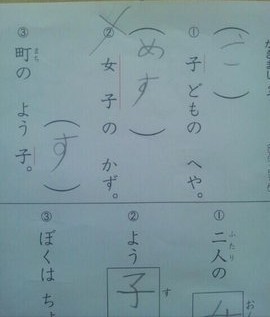 （こ）
① 子どもの へや。
（めす）
② 女子の かず。
（す）
③ 町の よう子。
まち
① 二人の
ふたり
おん
② よう子
す
③ ぼくは ちょ